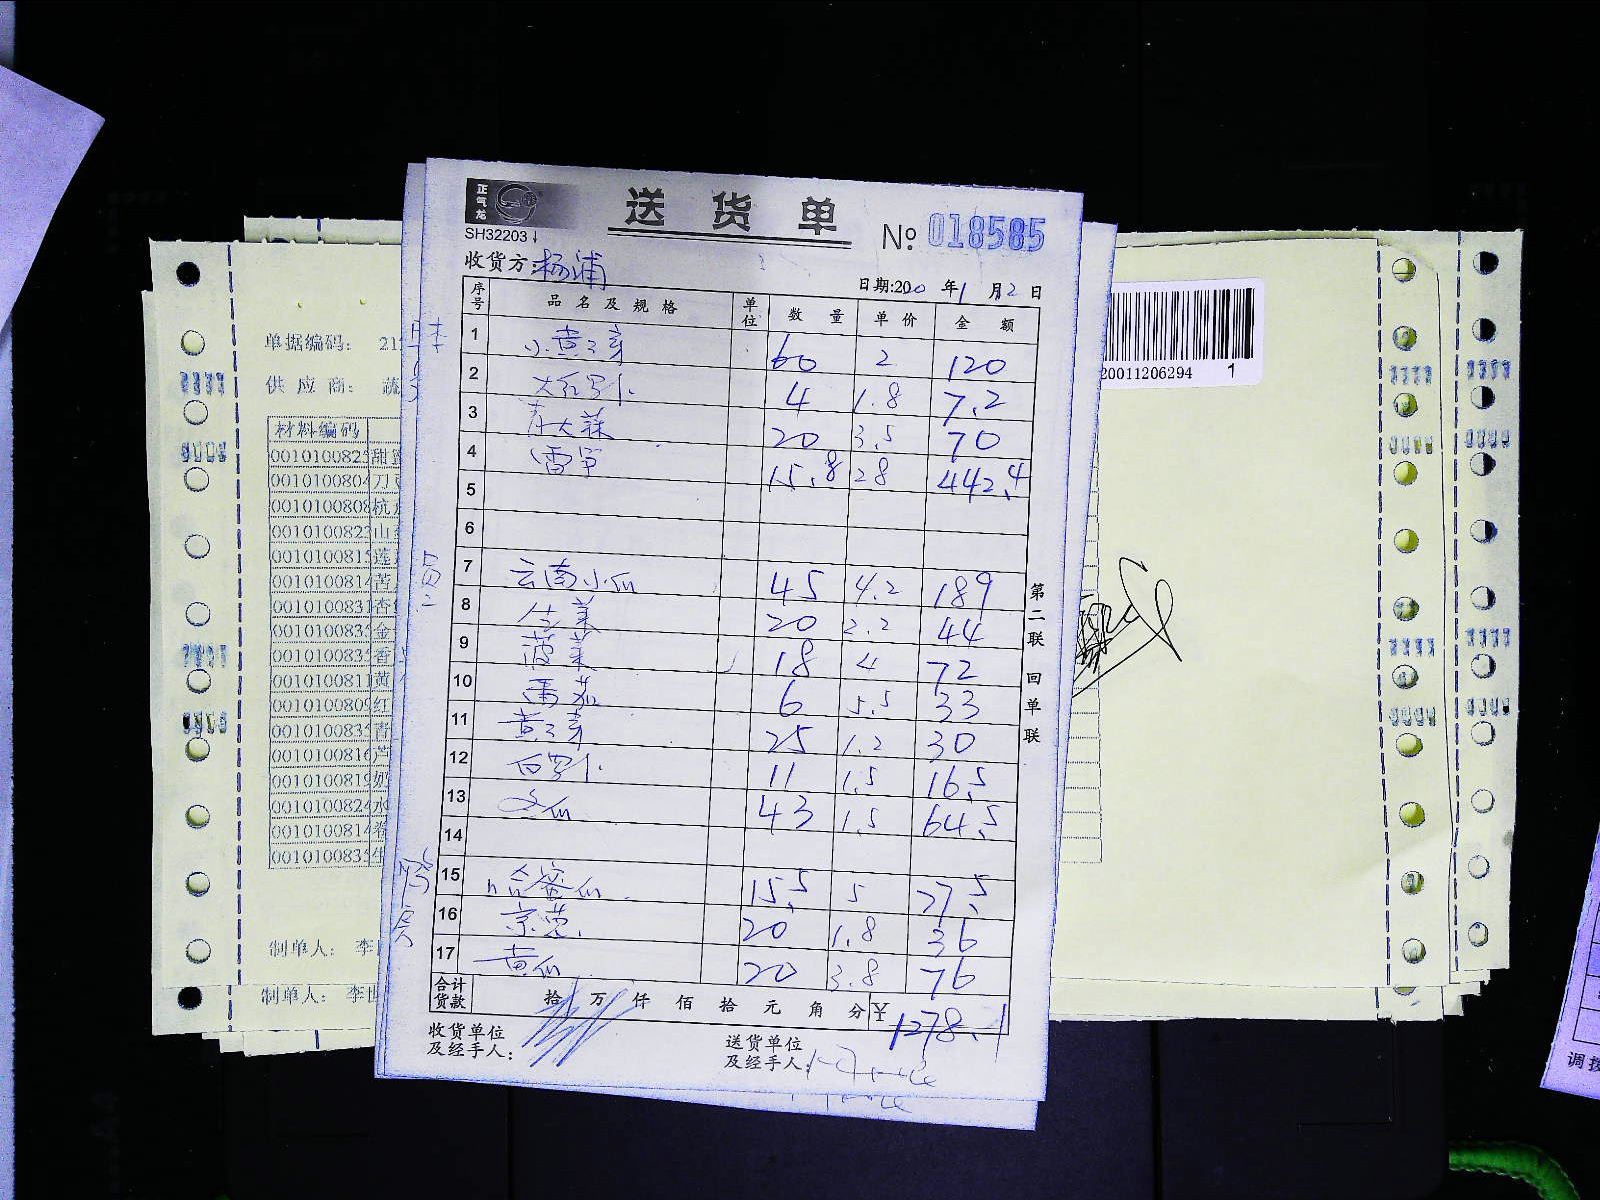 正气龙
送货单
SH32203
№ 018585
收货方: 杨浦
日期:2020年1月2日
序号 品名及规格 单位 数量 单价 金额
1 小黄豆芽 60 2 120
2 大红罗卜 4 1.8 7.2
3 青大蒜 20 3.5 70
4 雷笋 15.8 28 442.4
5
6
7 云南小瓜 45 4.2 189
8 生菜 20 2.2 44
9 菠菜 18 4 72
10 番茄 6 5.5 33
11 黄豆芽 25 1.2 30
12 白罗卜 11 1.5 16.5
13 冬瓜 43 1.5 64.5
14
15 哈蜜瓜 15.5 5 77.5
16 京葱 20 1.8 36
17 黄瓜 20 3.8 76
合计货款 拾 万 仟 佰 拾 元 角 分 ¥1278.1
收货单位及经手人:
送货单位及经手人:
第二联 回单联
单据编码: 21
供应商: 蔬
材料编码
001010082 甜
0010100804 刀
0010100808 杭
001010082 山
001010081 莲
0010100814 苦
001010083 香
001010083 金
001010083 香
001010081 黄
001010080 红
001010083 青
0010100816 芦
001010081 奶
0010100824 水
0010100814 卷
001010083 生
制单人: 李
制单人: 李世
20011206294 1
调拨